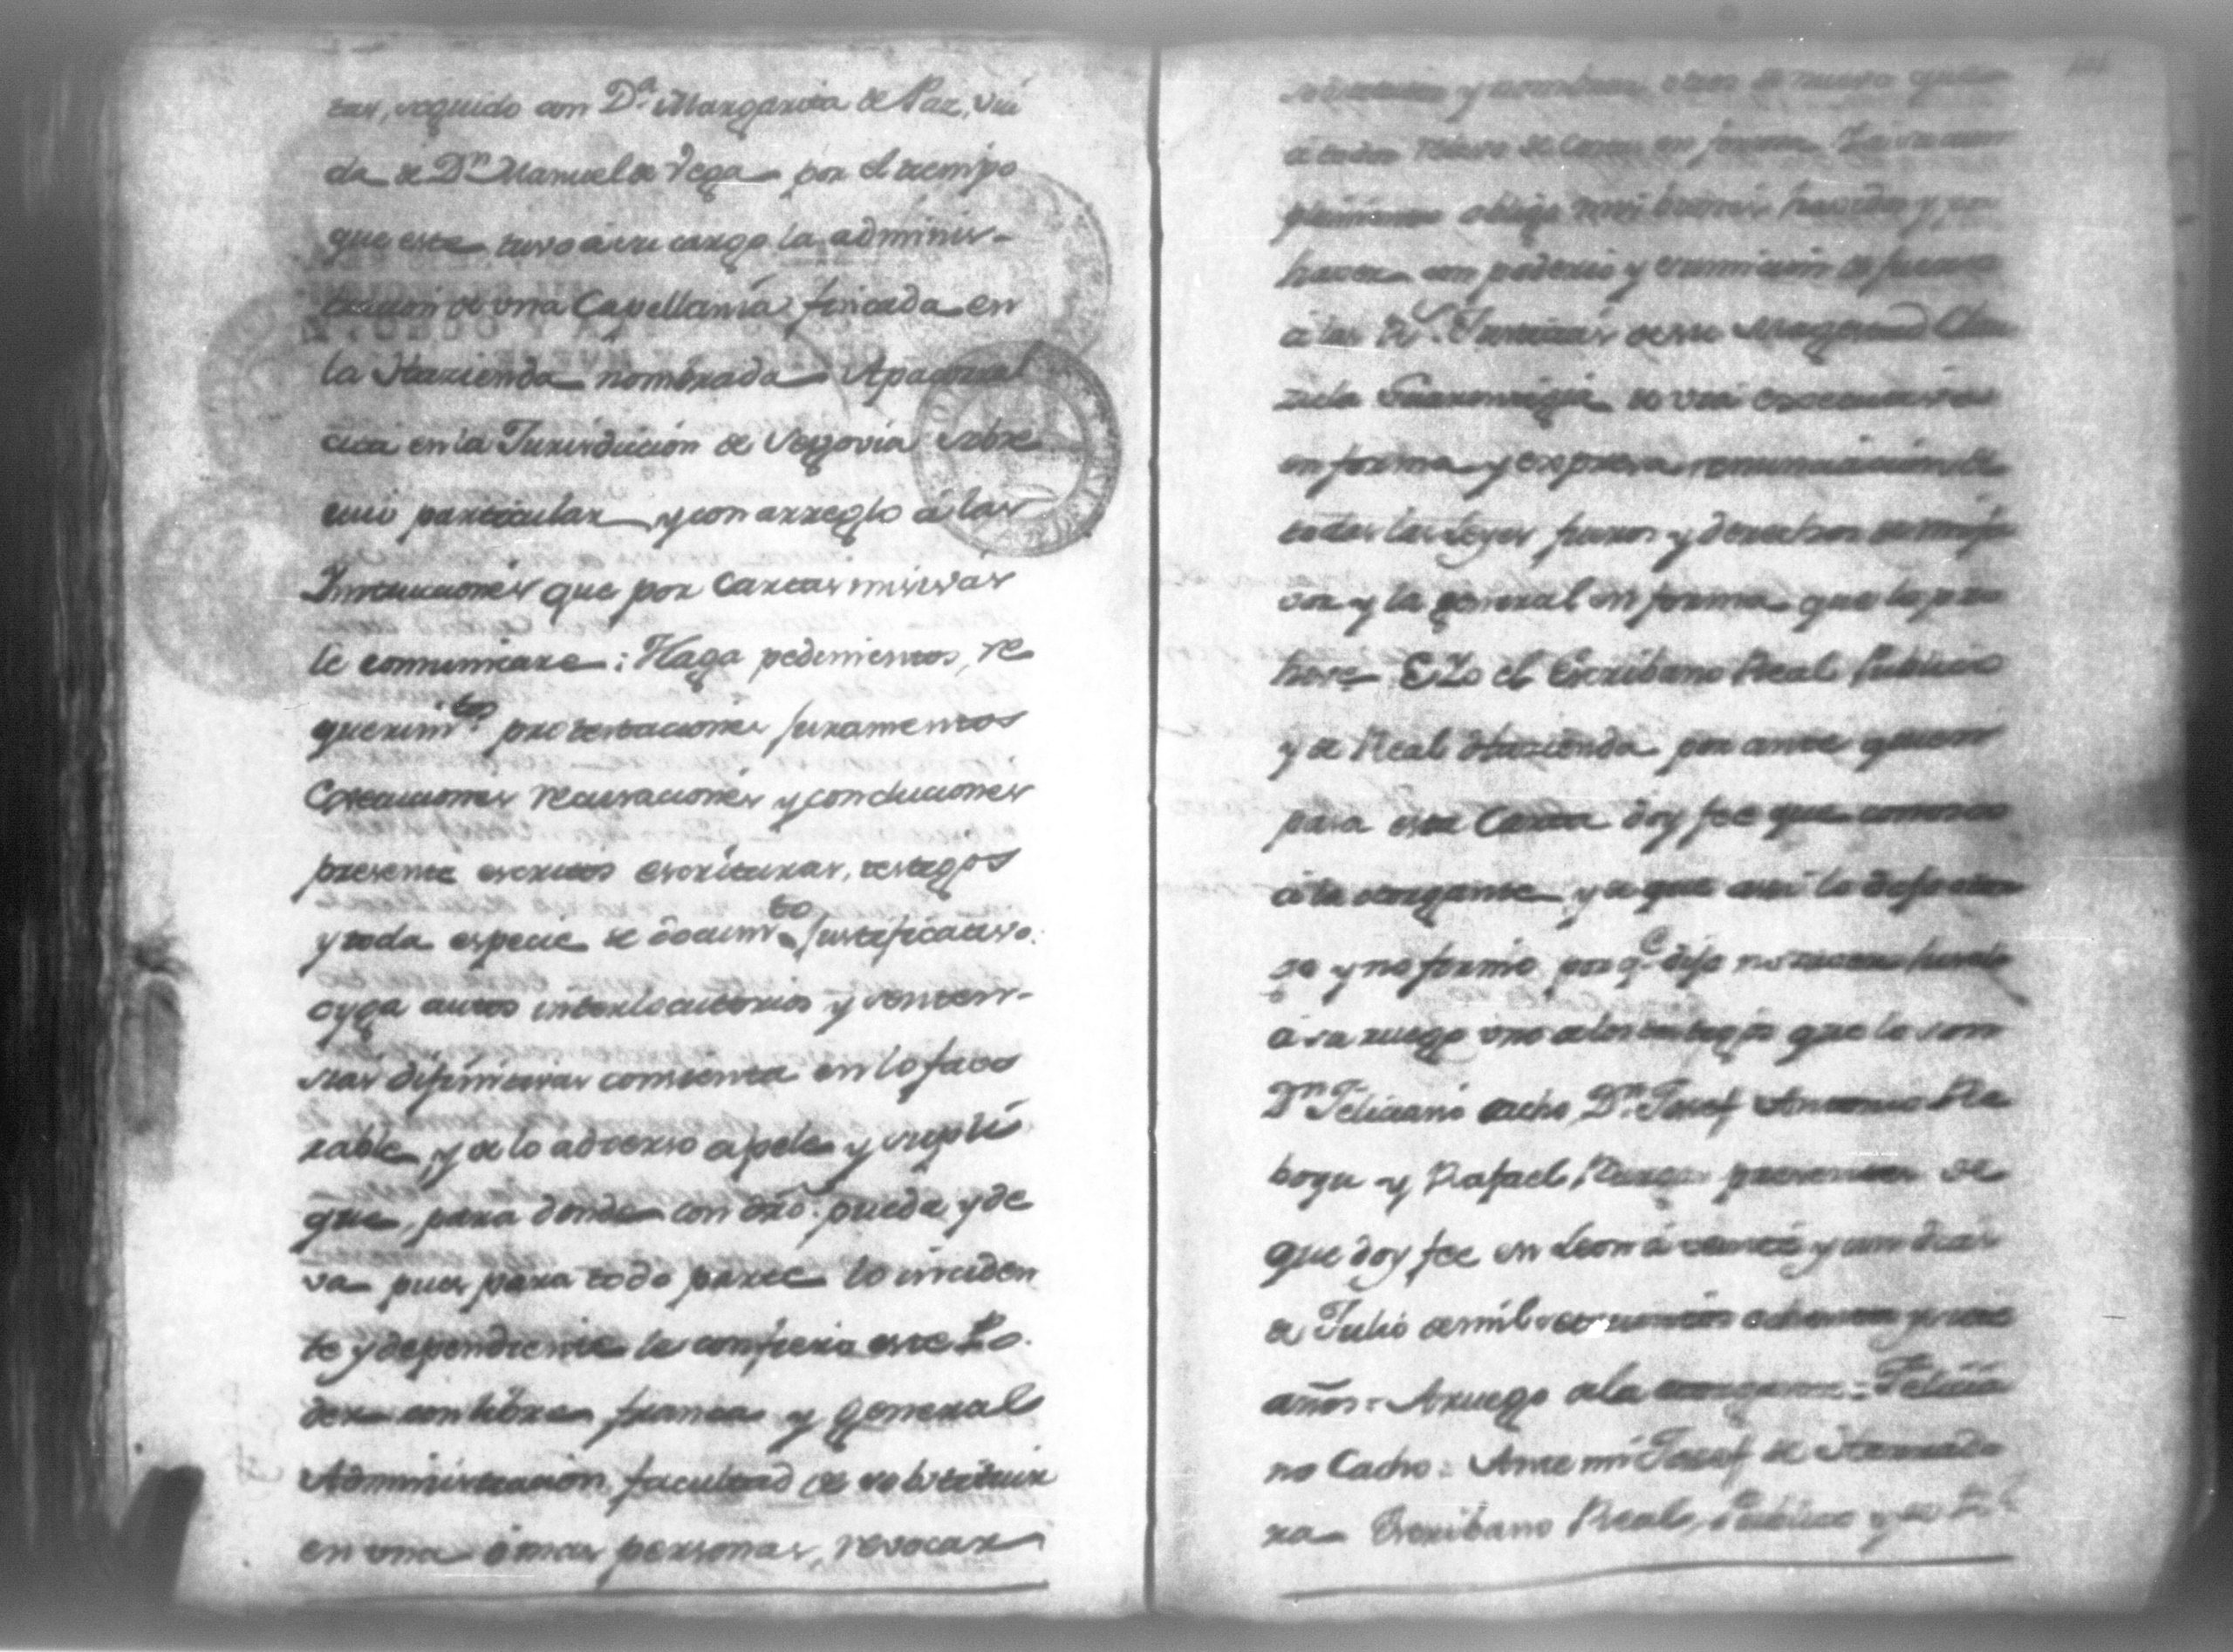 tas, seguido con Dª Margarita de Paz, viu
da de Dn Manuel de Vega por el tiempo
que esta tuvo á su cargo la adminis-
tracion de una Capellanía fincada en
la Hazienda nombrada Apacorral
cita en la Jurisdicion de Segovia sobre
cuio particular y con arreglo á las
Instrucciones que por Cartas misivas
le comunicare: Haga pedimentos, re
querimtos protestaciones juramentos
Execuciones recusaciones y conclusiones
presente escritos escrituras, testigos
y toda especie de documto justificativo.
oyga autos interlocutorios y senten-
sias difinitivas concienta en lo favo
rable, y de lo adverso apele y supli
que, para donde con dro. pueda y de
va pues para todo parte lo inciden
te y dependiente le confiero este Po.
der con libre franca y general
Administracion facultad de substituir
en una ó mas personas, revocar
substitutos y nombrar otros de nuevo que
á todos relevo de costas en forma. Y á su cum
plimiento obligo mis bienes havidos y por
haver con poderio y sumicion de fueros
á las Rs. Justicias de su Magestad Clau
zula Guarentigia de via executiva
en forma y expresa renunciacion de
todas las Leyes fueros y derechos de mi fa
vor y la general en forma que lo pro
hive. E Yo el Escribano Real Publico
y de Real Hazienda por ante quien
pasa esta Carta doy fee que conosco
á la otorgante y de que asi lo dijo otor
go y no firmó porqe dijo no saver hisolo
á su ruego uno de los testigos que lo son
Dn Feliciano Cacho, Dn Josef Antonio
y Rafael presentes de
que doy fee en Leon á veinte y un dias
de Julio de mil setecientos ochenta y
años = A ruego de la otorgante = Felicia
no Cacho = Ante mi Josef de Herrada
ra Escribano Real, Publico y de